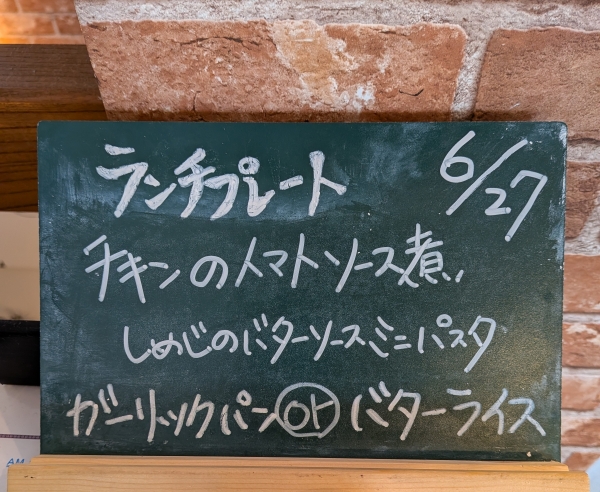 ランチプレート 6/27
チキンのトマトソース煮
しめじのバターソースミニパスタ
ガーリックパン or バターライス
AM